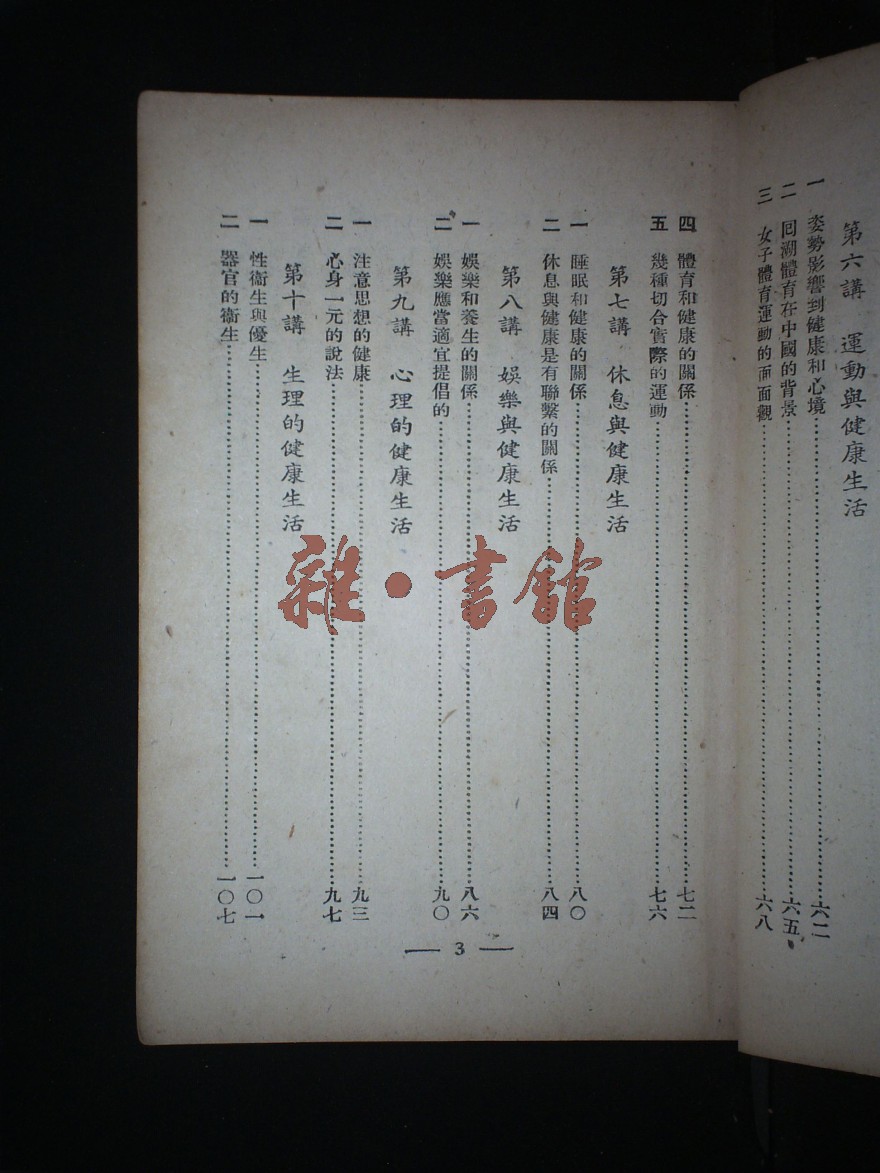 第六講　運動與健康生活
一　姿勢影響到健康和心境……六二
二　回溯體育在中國的背景……六五
三　女子體育運動的面面觀……六八
四　體育和健康的關係……七二
五　幾種切合實際的運動……七六
第七講　休息與健康生活
一　睡眠和健康的關係……八〇
二　休息與健康是有聯繫的關係……八四
第八講　娛樂與健康生活
一　娛樂和養生的關係……八六
二　娛樂應當適宜提倡的……九〇
第九講　心理的健康生活
一　注意思想的健康……九三
二　心身一元的說法……九七
第十講　生理的健康生活
一　性衞生與優生……一〇一
二　器官的衞生……一〇七
— 3 —
雜·書館